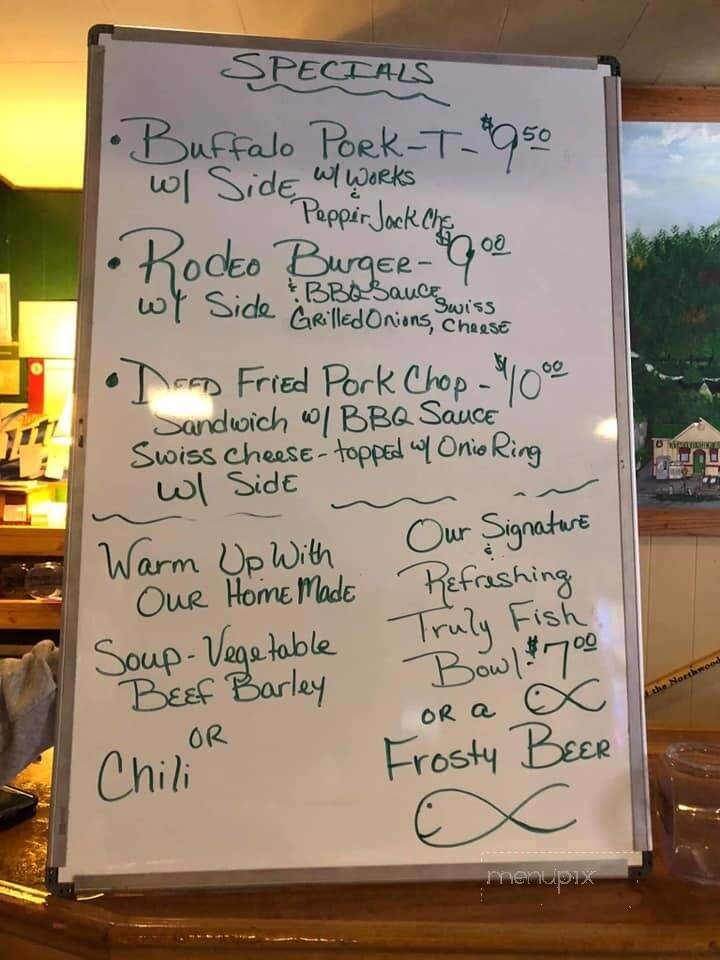 SPECIALS
• Buffalo Pork-T- $9.50
w/ Side w/ Works
& Pepper Jack Che
• Rodeo Burger- $9.00
w/ Side & BBQ Sauce, Swiss
Grilled Onions, Cheese
• Deep Fried Pork Chop - $10.00
Sandwich w/ BBQ Sauce
Swiss Cheese - topped w/ Onio Ring
w/ Side
Warm Up With
Our HomeMade
Soup - Vegetable
Beef Barley
OR
Chili
Our Signature
&
Refreshing
Truly Fish
Bowl! $7.00
OR a
Frosty Beer
the Northwood
menupix